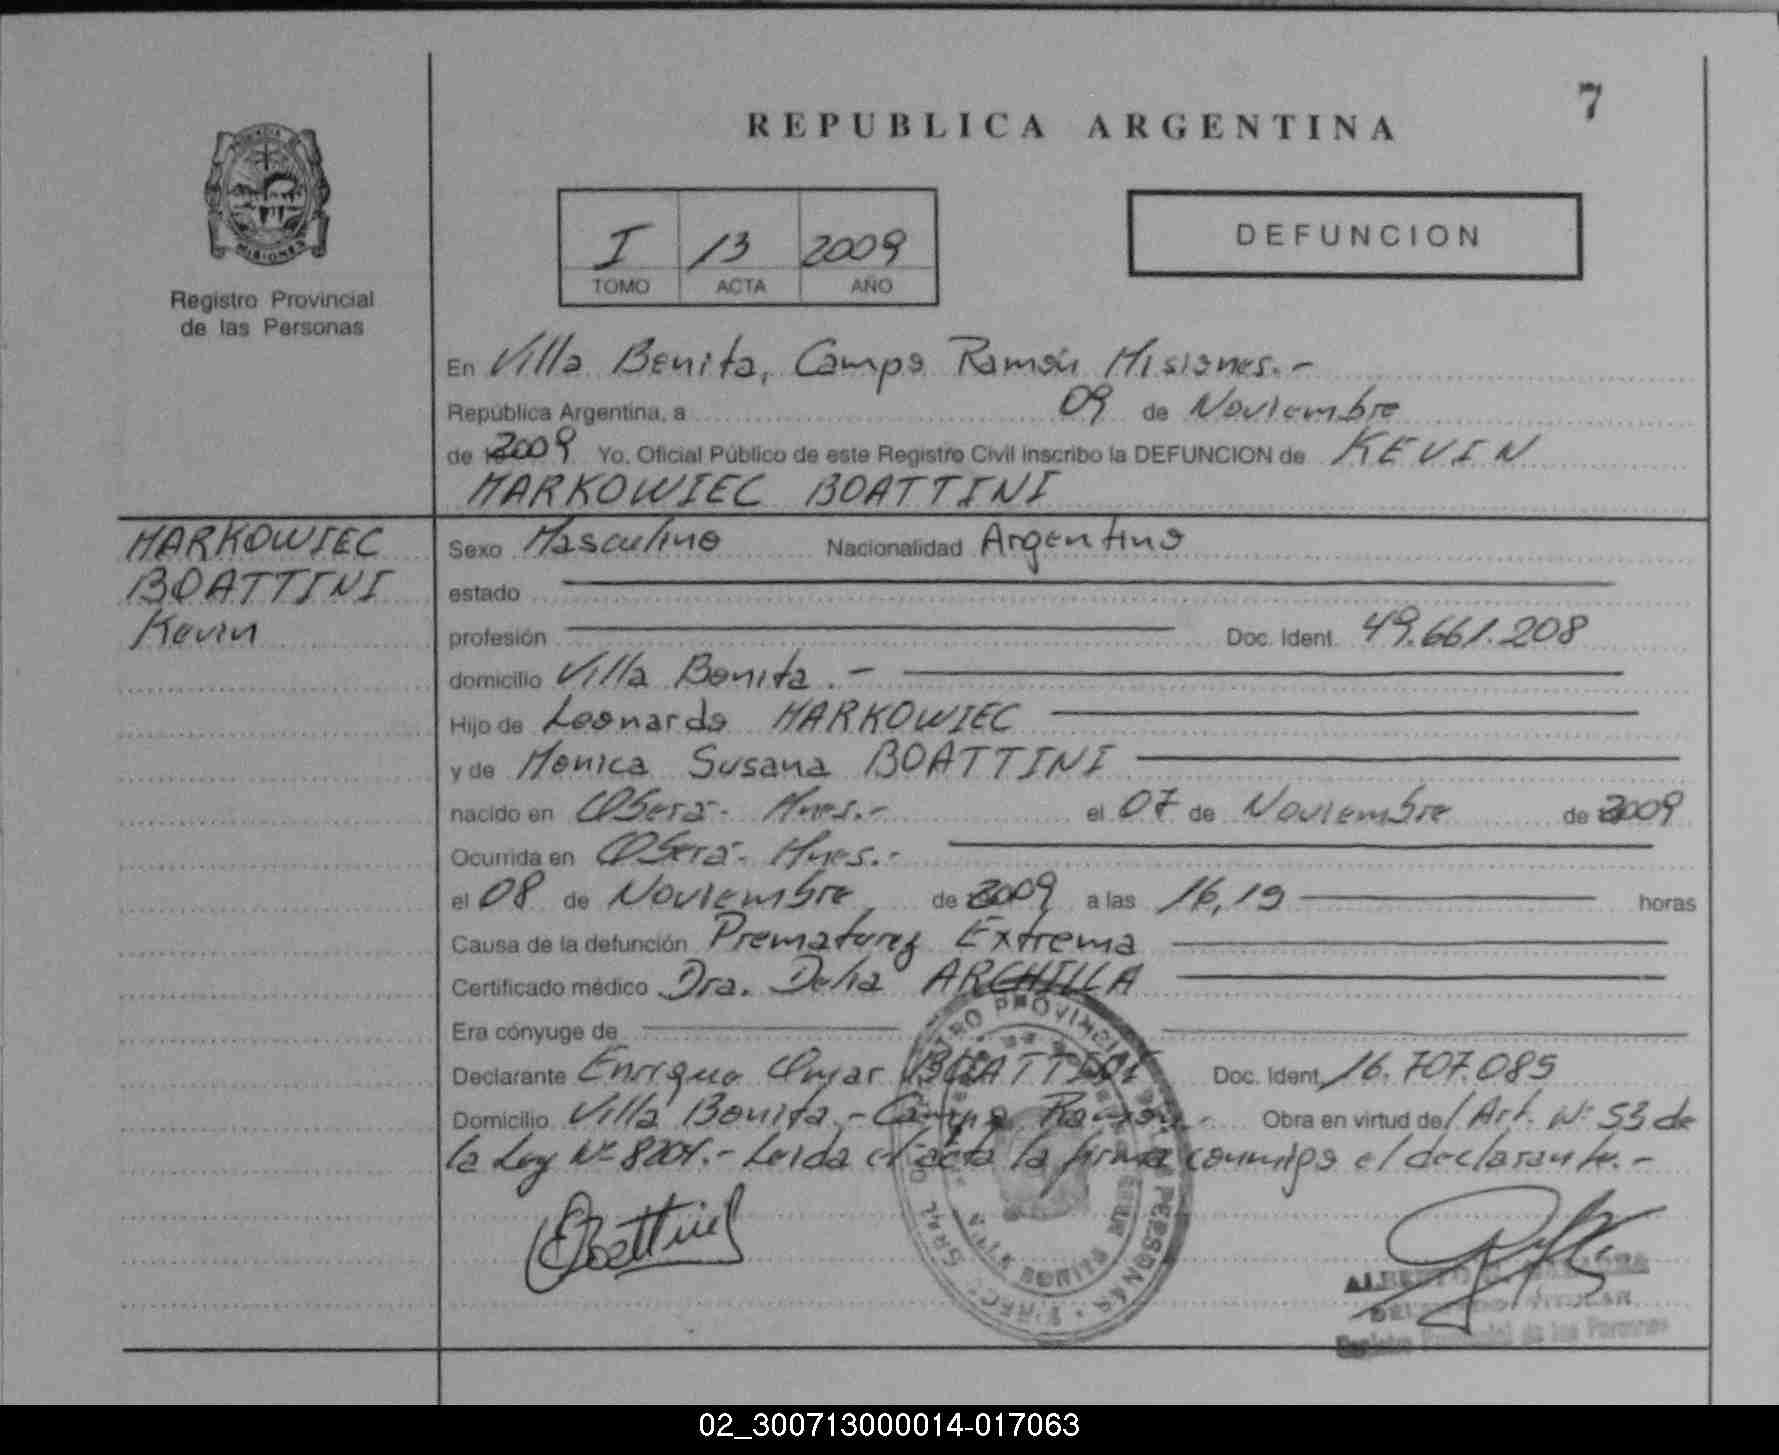 7
REPUBLICA ARGENTINA
MISIONES
Registro Provincial
de las Personas
I 13 2009
TOMO ACTA AÑO
DEFUNCION
En Villa Bonita, Campo Ramón Misiones.-
República Argentina, a 09 de Noviembre
de 2009 Yo, Oficial Público de este Registro Civil inscribo la DEFUNCION de KEVIN
MARKOWIEC BOATTINI
MARKOWIEC
BOATTINI
Kevin
Sexo Masculino Nacionalidad Argentino
estado
profesión Doc. Ident. 49.661.208
domicilio Villa Bonita.-
Hijo de Leonardo MARKOWIEC
y de Monica Susana BOATTINI
nacido en Oberá- Mnes.- el 07 de Noviembre de 2009
Ocurrida en Oberá- Mnes.-
el 08 de Noviembre de 2009 a las 16,19 horas
Causa de la defunción Prematurez Extrema
Certificado médico Dra. Delia ARCHILLA
Era cónyuge de
Declarante Enrique Omar BOATTINI Doc. Ident. 16.707.085
Domicilio Villa Bonita.- Campo Ramón.- Obra en virtud del Art. Nº 53 de
la Ley Nº 8204.- Leida el acta la firma conmigo el declarante.-
EBoattini
ALBERTO
DELEGADO TITULAR
Registro Provincial de las Personas
02_300713000014-017063